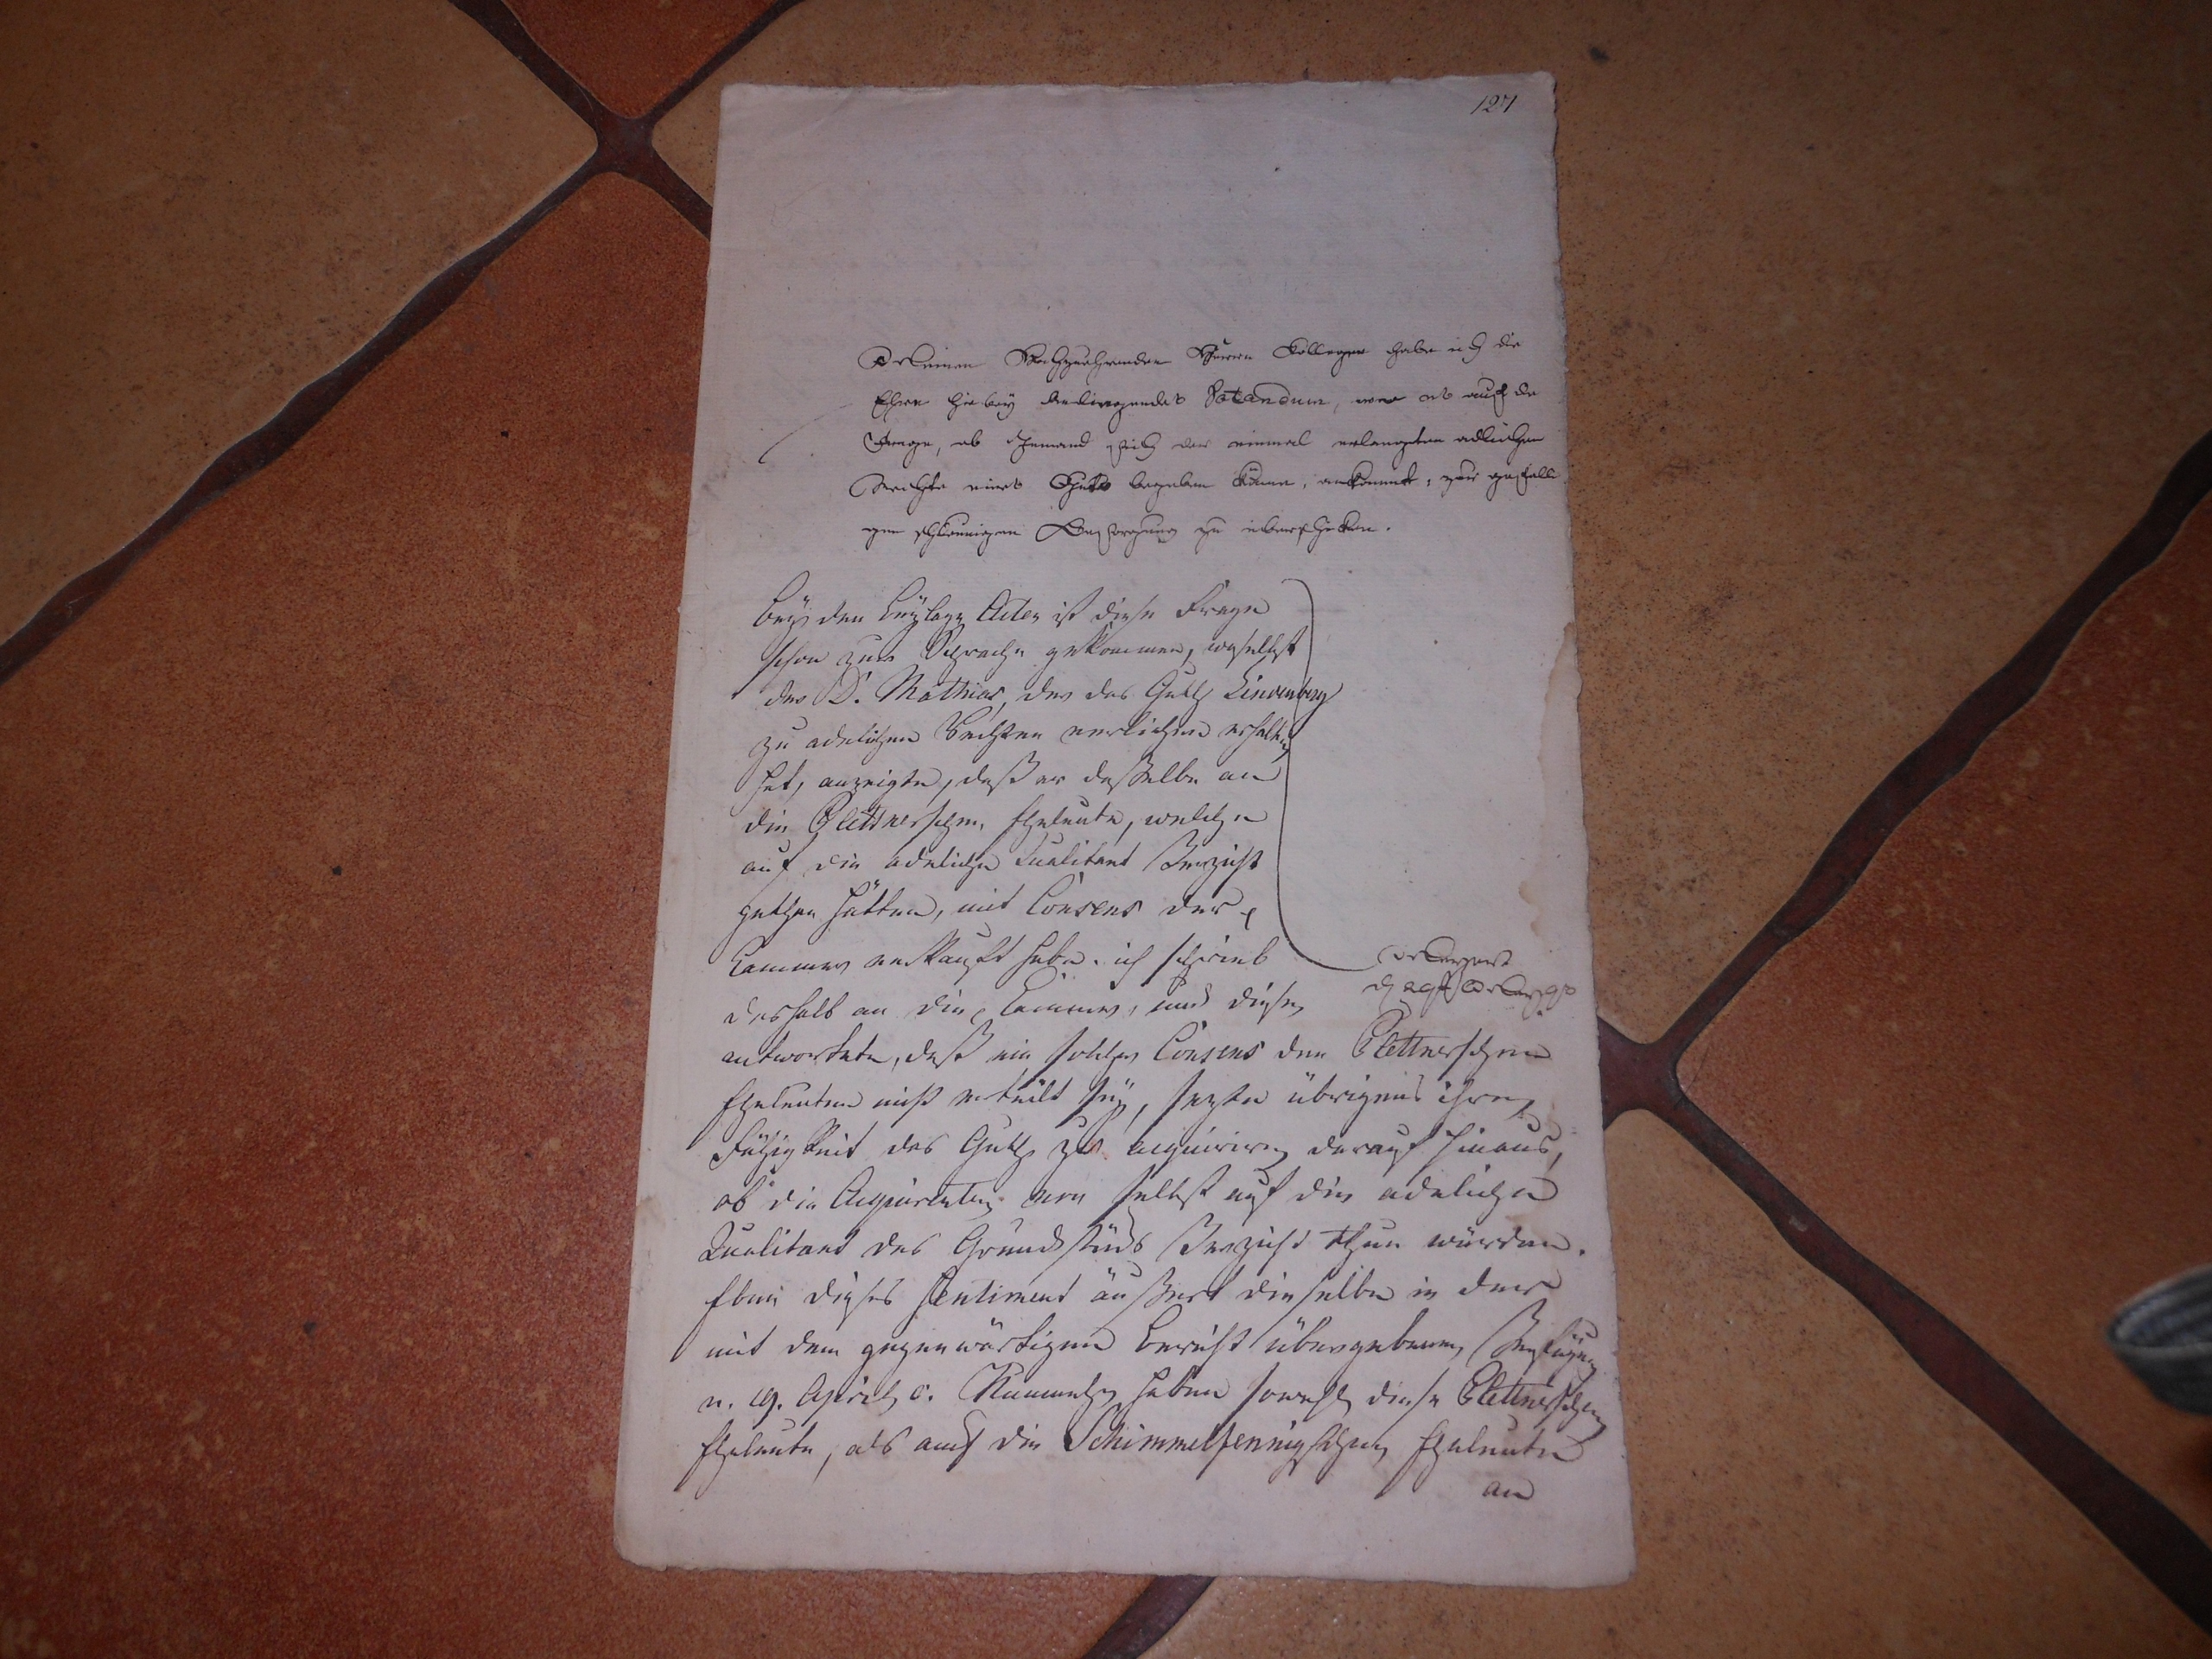 127
Meinen Hochzuehrenden Herren Collegen habe ich die
Ehre hiebey anliegendes Votandum, wo es auf die
Frage, ob Jemand sich der einmal erlangten adlichen
Rechte eines Guts begeben könne, ankommt, zur gefälli
gen schleunigen Besorgung zu überschicken.
Bey den Beylage Acten ist diese Frage
schon zur Sprache gekommen, woselbst
der D. Mathias, der das Guth Lindenberg
zu adelichen Rechten verliehen erhalten
hat, anzeigte, daß er dasselbe an
die Plettnerschen Eheleute, welche
auf die adeliche Qualitaet Verzicht
gethan hätten, mit Consens der
Cammer verkauft habe. ich schrieb
deshalb an die Cammer, und diese
antwortete, daß ein solcher Consens den Plettnerschen
Eheleuten nicht ertheilt sey, setzte übrigens ihre
Fähigkeit das Guth zu acquiriren darauf hinaus,
ob die Acquirenten von selbst auf die adeliche
Qualitaet des Grundstücks Verzicht thun würden.
Eben dieses Sentiment äußert dieselbe in der
mit dem gegenwärtigen Bericht übergebenen Verfügung
v. 19. April c. Nunmehr haben sowohl diese Plettnerschen
Eheleute, als auch die Schimmelfennigschen Eheleute
an